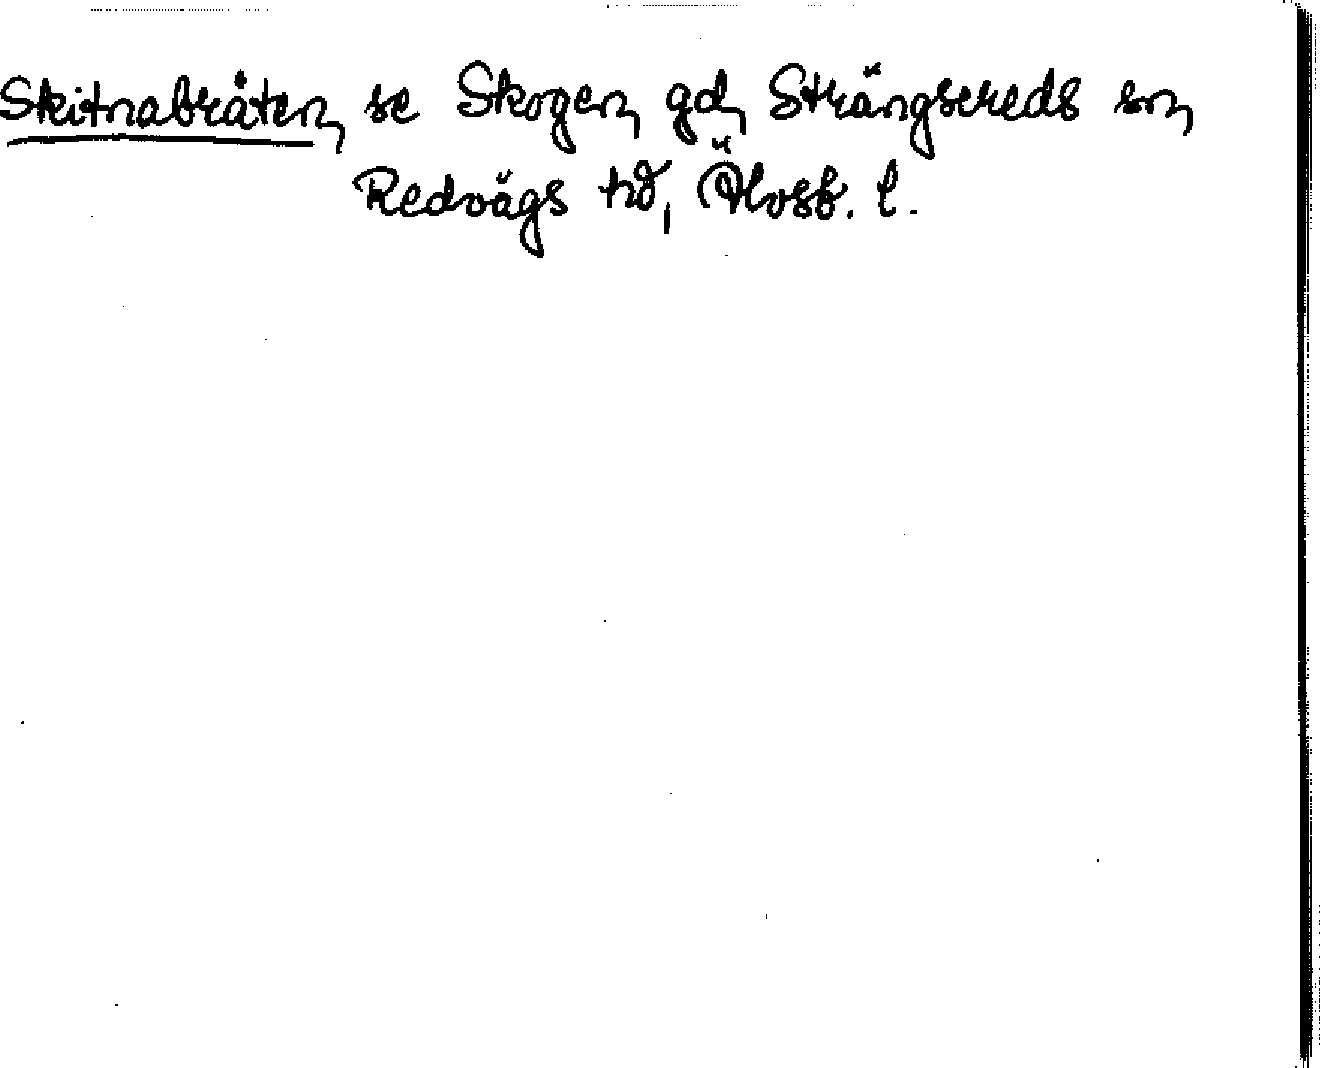 Skitnabråten, se Skogen, gd, Strängsereds sn,
Redvägs hd, Älvsb. l.